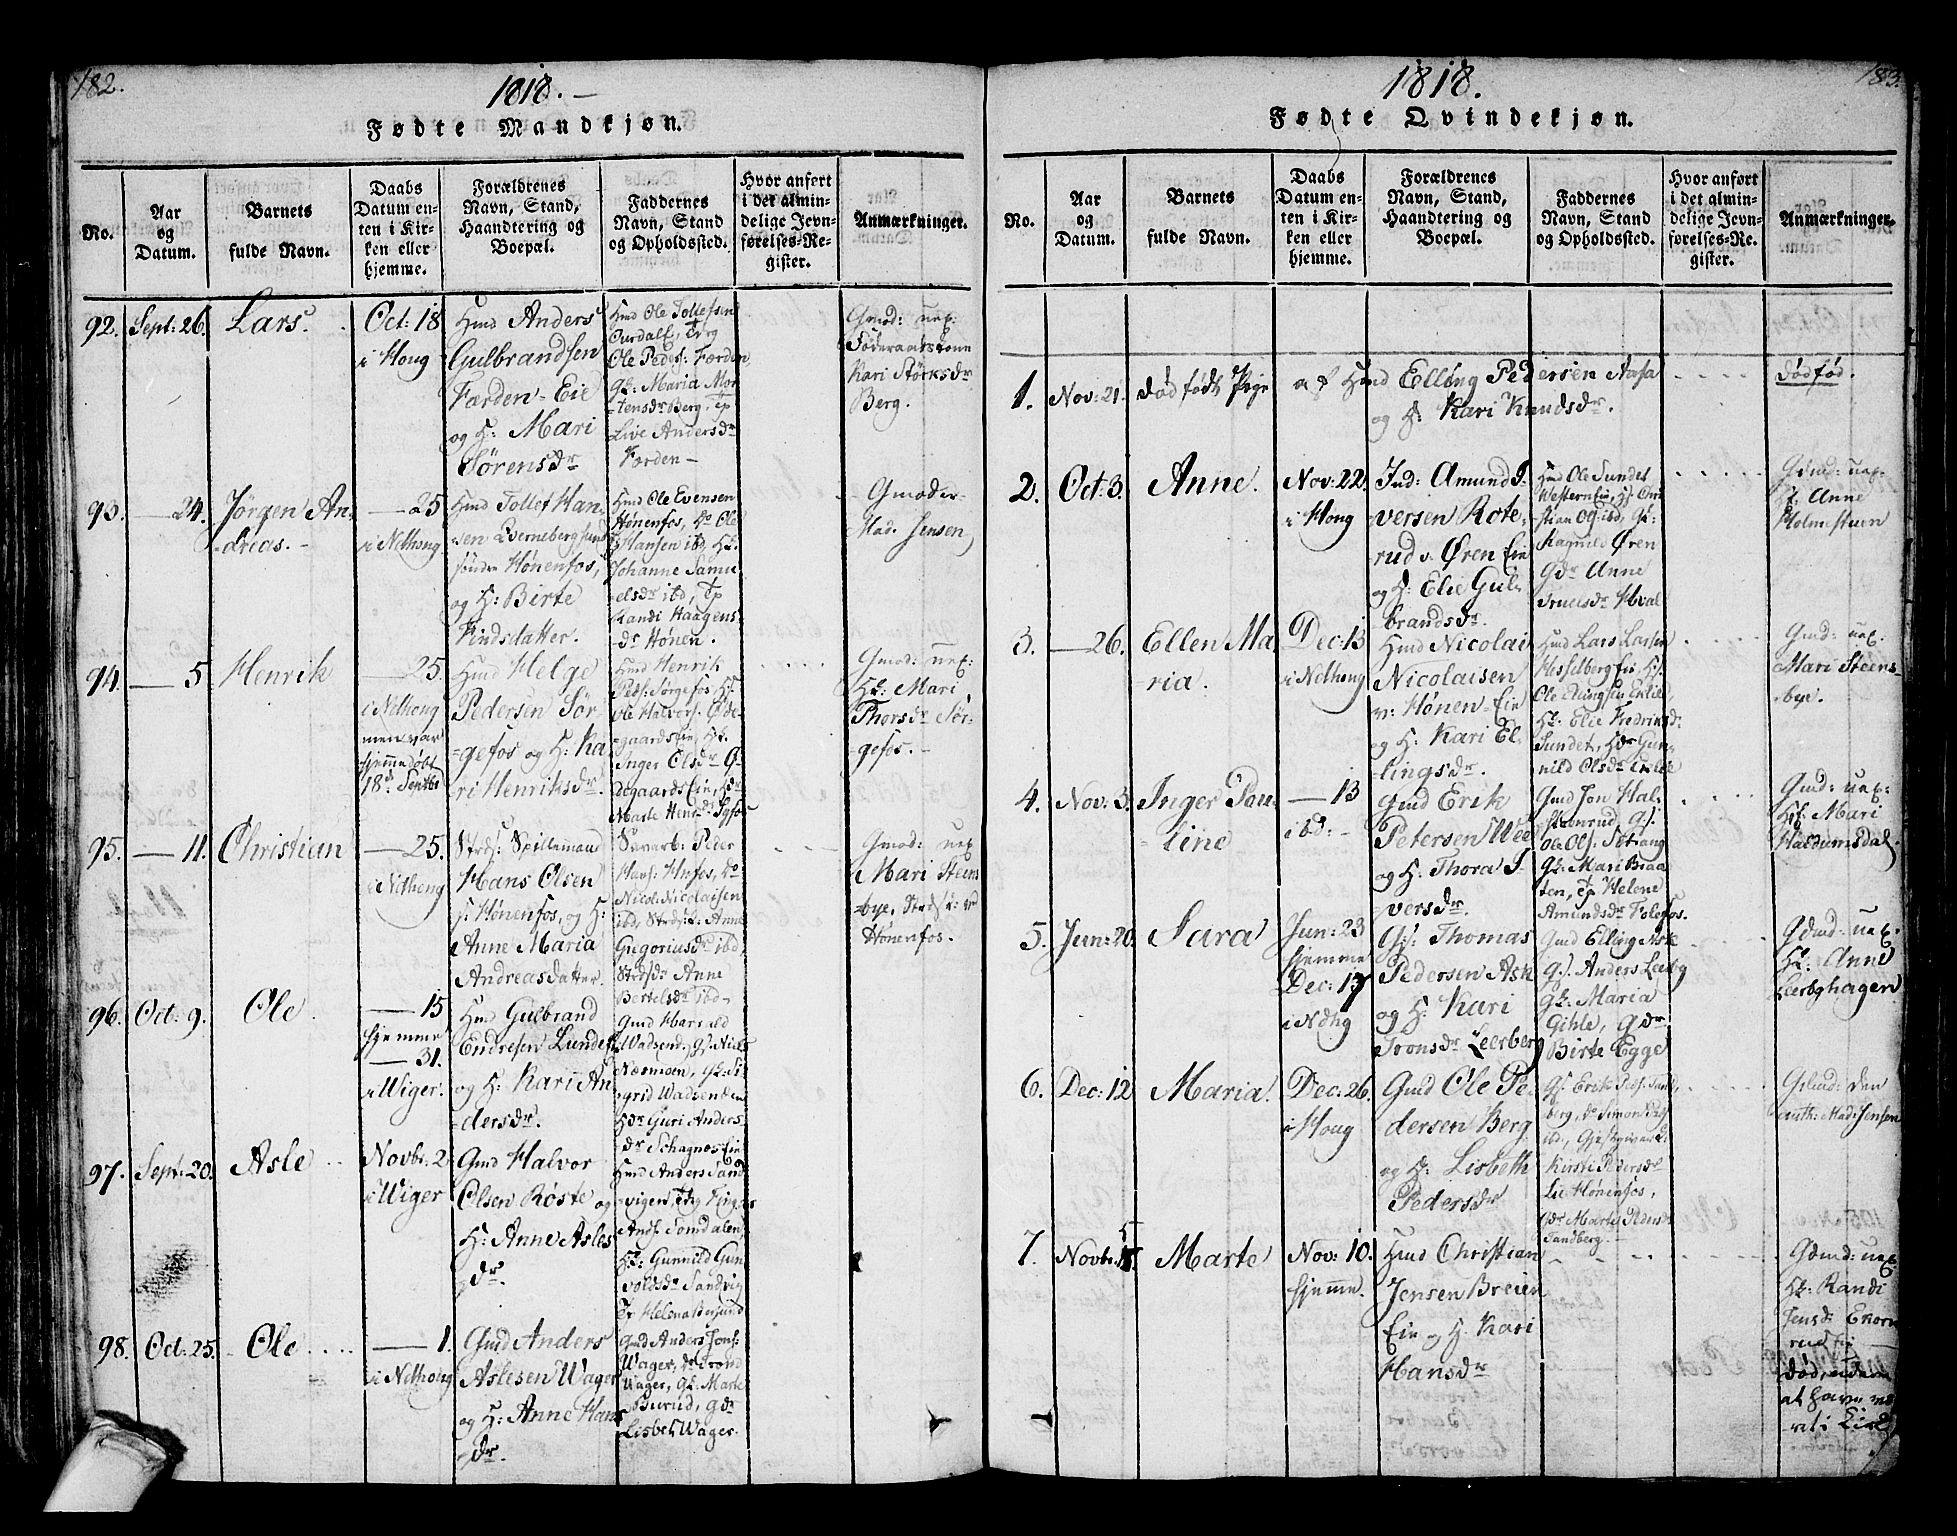 182.
1818. —
Fødte Mandkjøn.
No.
Aar
og
Datum.
Barnets
fulde Navn.
Daabs
Datum en-
ten i Kir-
ken eller
hjemme.
Forældrenes
Navn, Stand,
Haandtering og
Boepæl.
Faddernes
Navn, Stand
og Opholdssted.
Hvor anført
i det almin-
delige Jevn-
førelses-Re-
gister.
Anmærkninger.
92.
Sept: 26.
Lars.
Oct: 18
i Houg
Hmd Anders
Gulbrandsen
Færden-Eie
og H: Mari
Sørensdr
Hmd Ole Tollefsen
Ole Peders: Færden
Gk: Maria Mor
tensdr Berg, Tp
Live Andersdr
Færden —
Gmod: uex:
Føderaadskone
Kari Størksdr
Berg.
93.
— 24.
Jørgen An-
dreas. —
— 25
i Nclhong
Hmd Tollef Han-
sen Qverneberg sund
søndre Hønenfos,
og H: Birte
Knudsdatter.
Hmd Ole Evensen
Hønenfos, do Ole
Hansen ibd, Hk:
Johanne Samu
elsdr ibd, Tp
Randi Haagens
dr Hønen.
Gmoder
Mad. Jensen
94.
— 5
Henrik
— 25.
i Nclhong
men var
hjemmedøbt
18d Septbr
Hmd Helge
Pedersen Sør-
gefos og H: Ka
ri Henriksdr
Hmd Henrik
Peds: Sørgefos, H:
Ole Halvors: Øde-
gaardsEie, Hk:
Inger Olsdr Ø-
degaardsEie, Hdr
Marte Henrdr Sgfos
Gmod: uex:
Hk: Mari
Thorsdr Sør-
gefos. —
95.
— 11.
Christian
— 25.
i Nclhong
Strds: Spillemand
Hans Olsen
p: Hønenfos, og H:
Anne Maria
Andreasdatter.
Svarb: Peer
Hans: Hnfos, do
Nicol: Nicolaisen
ibd, Strdsk: Anne
Gregoriusdr ibd,
Strdsdr Anne
Bertelsdr ibd —
Gmod: uex
Mari Steens
bye, Strdsk: vd
Hønenfos.
96.
Oct: 9.
Ole.
— 15
hjemme
— 31.
i Wiger.
Hmd Gulbrand
Endresen Lundes
og H: Kari An
dersdr.
Gmd Harald
Wadsend, Gs: Niels
Næsmoen, Gk: Si
grid Wadsenden
Hdr Guri Anders-
dr SchagnesEie
97.
Sept: 20.
Asle
Novbr. 2
i Wiger
Gmd Halvor
Olsen Røste og
H: Anne Asles
dr.
Hmd Anders Sand
vigen, Tdrg Fingar
Ands: Somdalen,
Hk: Gunnild Gun
voldsdr Sandvig
98.
Oct: 25.
Ole
— 1.
i Nclhong
Gmd Anders
Aslesen Wager
og H: Anne Hans
dr
Gmd Anders Jons:
Wager, do Trond
Wager, Gk: Marte
Burud, Gdr
Lisbet Wager
183.
1818.
Fødte Qvindekjøn.
No.
Aar
og
Datum.
Barnets
fulde Navn.
Daabs
Datum en-
ten i Kir-
ken eller
hjemme.
Forældrenes
Navn, Stand,
Haandtering og
Boepæl.
Faddernes
Navn, Stand
og Opholdssted.
Hvor anført
i det almin-
delige Jevn-
førelses-Re-
gister.
Anmærkninger.
1.
Nov: 21.
dødfødt Pige
af Hmd Elling Pedersen Aasa
og H: Kari Knudsdr.
dødfød.
2.
Oct: 3.
Anne.
Nov: 22.
i Houg
Ind: Amund I-
versen Rote-
rud v. Øren Eie
og H: Elie Gul-
brandsdr.
Hmd Ole Sundet
WesternEie, Hs Chri
stian Ols: ibd, Gk:
Ragnild Øren
Gdr Anne
Truelsdr Hval
Gdmd: uex.
Hk Anne
Holmsteen
3.
— 26.
Ellen Ma
ria.
Dec: 13
i Nclhong
Hmd Nicolai
Nicolaisen
v: Hønen-Eie
og H: Kari El-
lingsdr.
Hmd Lars Larsen
HesselbergEie, Hs.
Ole EllingsenEnlie,
Hk: Elie Fredriksd:
Sundet, Hdr Gun-
nild Olsdr Enlie
Gmd: uex.
Mari Steens-
bye.
4.
Nov: 3.
Inger Pau-
line
— 13
ibd: —
Gmd Erik
Petersen Wee
og H: Thora I-
versdr.
Gmd Jon Hal-
steenrud, Gs:
Ole Ols: Setrang
Gk: Mari Braa
ten, Tp Helene
Amundsdr Folefos.
Gmd: uex:
Hk Mari
Haldumsdal.
5.
Jun: 20.
Sara
Jun: 23
hjemme
Dec: 13
i Ndhg
Gs: Thomas
Pedersen Ask
og H: Kari
Tronsdr Leerberg
Gmd Elling Ask
Gs. Anders Leerbg
Gk: Maria
Gihle, Gdr
Birte Egge
Gdmd: uex.
Hk: Anne
Leerbghagen
6.
Dec: 12
Maria.
Dec: 26.
i Houg
Gmd Ole Pe
dersen Berg
og H: Lisbeth
Pedersdr
Gs: Erik Peds: Sand
berg, do Simon Pds
ibd, Gjestgiver k:
Kirsti Pedersdr
Lie Hønenfos,
Gdr Marte Pedersd
Sandberg. —
Gdmd: den
auth: Mad: Jensen
7.
Novbr. 5
Marte
Nov: 10.
hjemme.
Hmd Christian
Jensen Breien
Eie og H. Kari
Hansdr
Gdmd: uex
Hk: Randi
Jensdr Ekorn
rud Eie
død, uden
at have væ
ret i Kirke